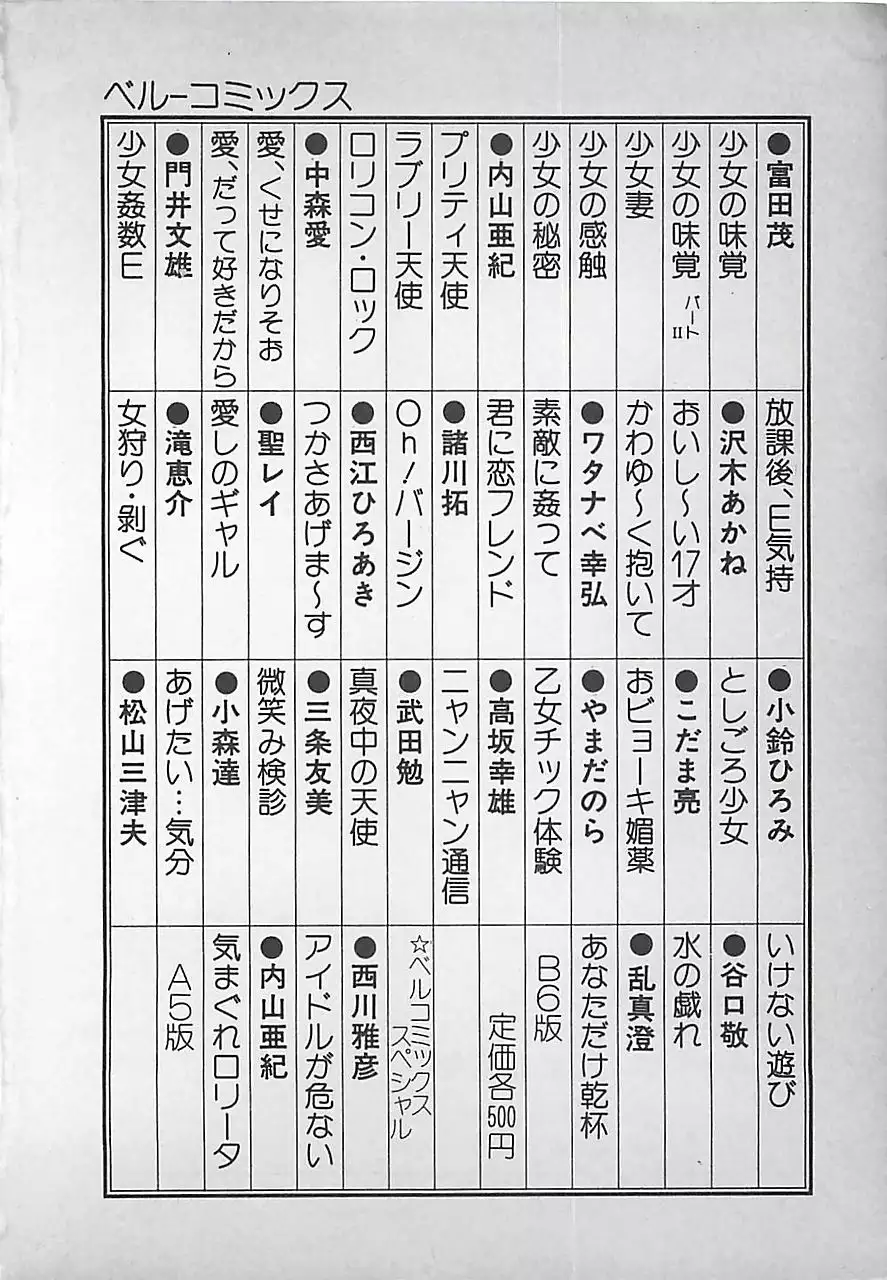 ベルーコミックス
●富田茂
少女の味覚
少女の味覚 パートII
少女妻
少女の感触
少女の秘密
●内山亜紀
プリティ天使
ラブリー天使
ロリコン・ロック
●中森愛
愛、くせになりそお
愛、だって好きだから
●門井文雄
少女姦数E
放課後、E気持
●沢木あかね
おいし〜い17才
かわゆ〜く抱いて
●ワタナベ幸弘
素敵に姦って
君に恋フレンド
●諸川拓
Oh!バージン
●西江ひろあき
つかさあげま〜す
●聖レイ
愛しのギャル
●滝恵介
女狩り・剥ぐ
●小鈴ひろみ
としごろ少女
●こだま亮
おビョーキ媚薬
●やまだのら
乙女チック体験
●高坂幸雄
ニャンニャン通信
●武田勉
真夜中の天使
●三条友美
微笑み検診
●小森達
あげたい…気分
●松山三津夫
いけない遊び
●谷口敬
水の戯れ
●乱真澄
あなただけ乾杯
B6版
定価各500円
☆ベルコミックススペシャル
●西川雅彦
アイドルが危ない
●内山亜紀
気まぐれロリータ
A5版